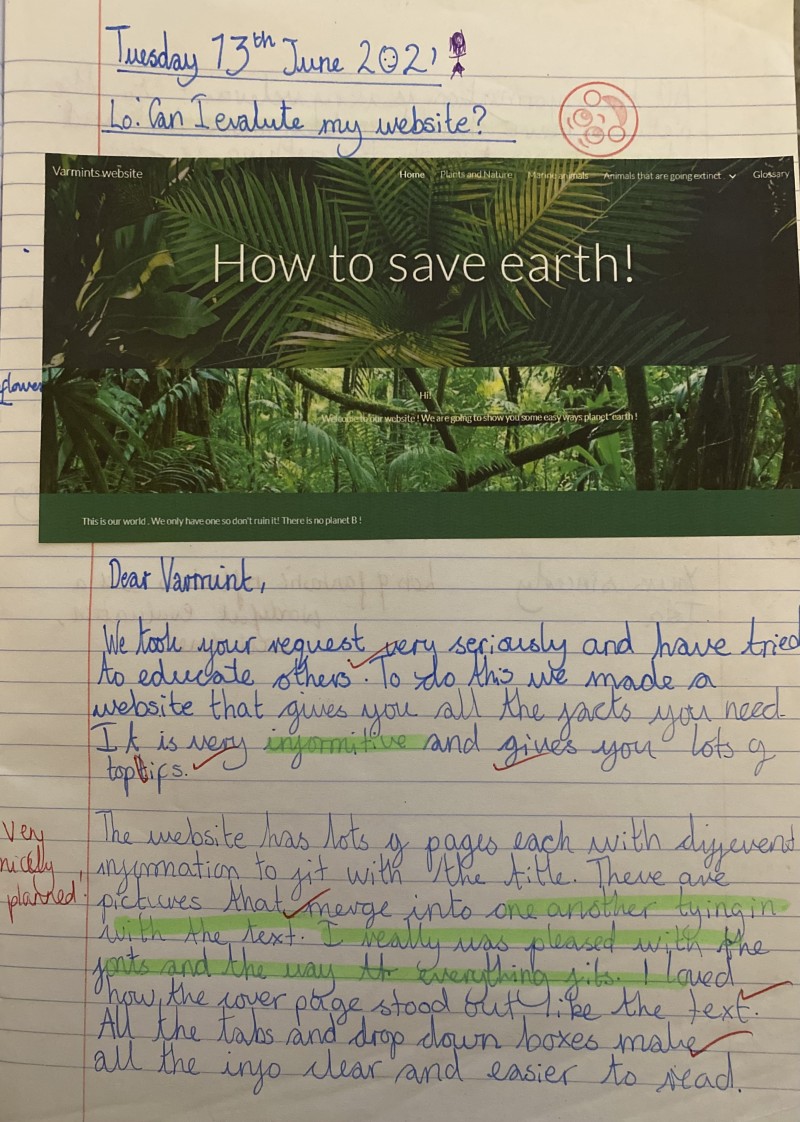 Tuesday 13th June 2021
Lo: Can I evalute my website?
Varmints website
Home Plants and Nature Marine animals Animals that are going extinct Glossary
How to save earth!
Hi!
Welcome to our website ! We are going to show you some easy ways planet earth !
flower
This is our world . We only have one so don't ruin it! There is no planet B !
Dear Varmint,
We took your request very seriously and have tried
to educate others. To do this we made a
website that gives you all the facts you need.
It is very informitive and gives you lots of
toptips.
The website has lots of pages each with different
information to fit with the title. There are
Very nicely planned.
pictures that merge into one another tying in
with the text. I really was pleased with the
fonts and the way everything fits. I loved
how the cover page stood out like the text.
All the tabs and drop down boxes make
all the info clear and easier to read.